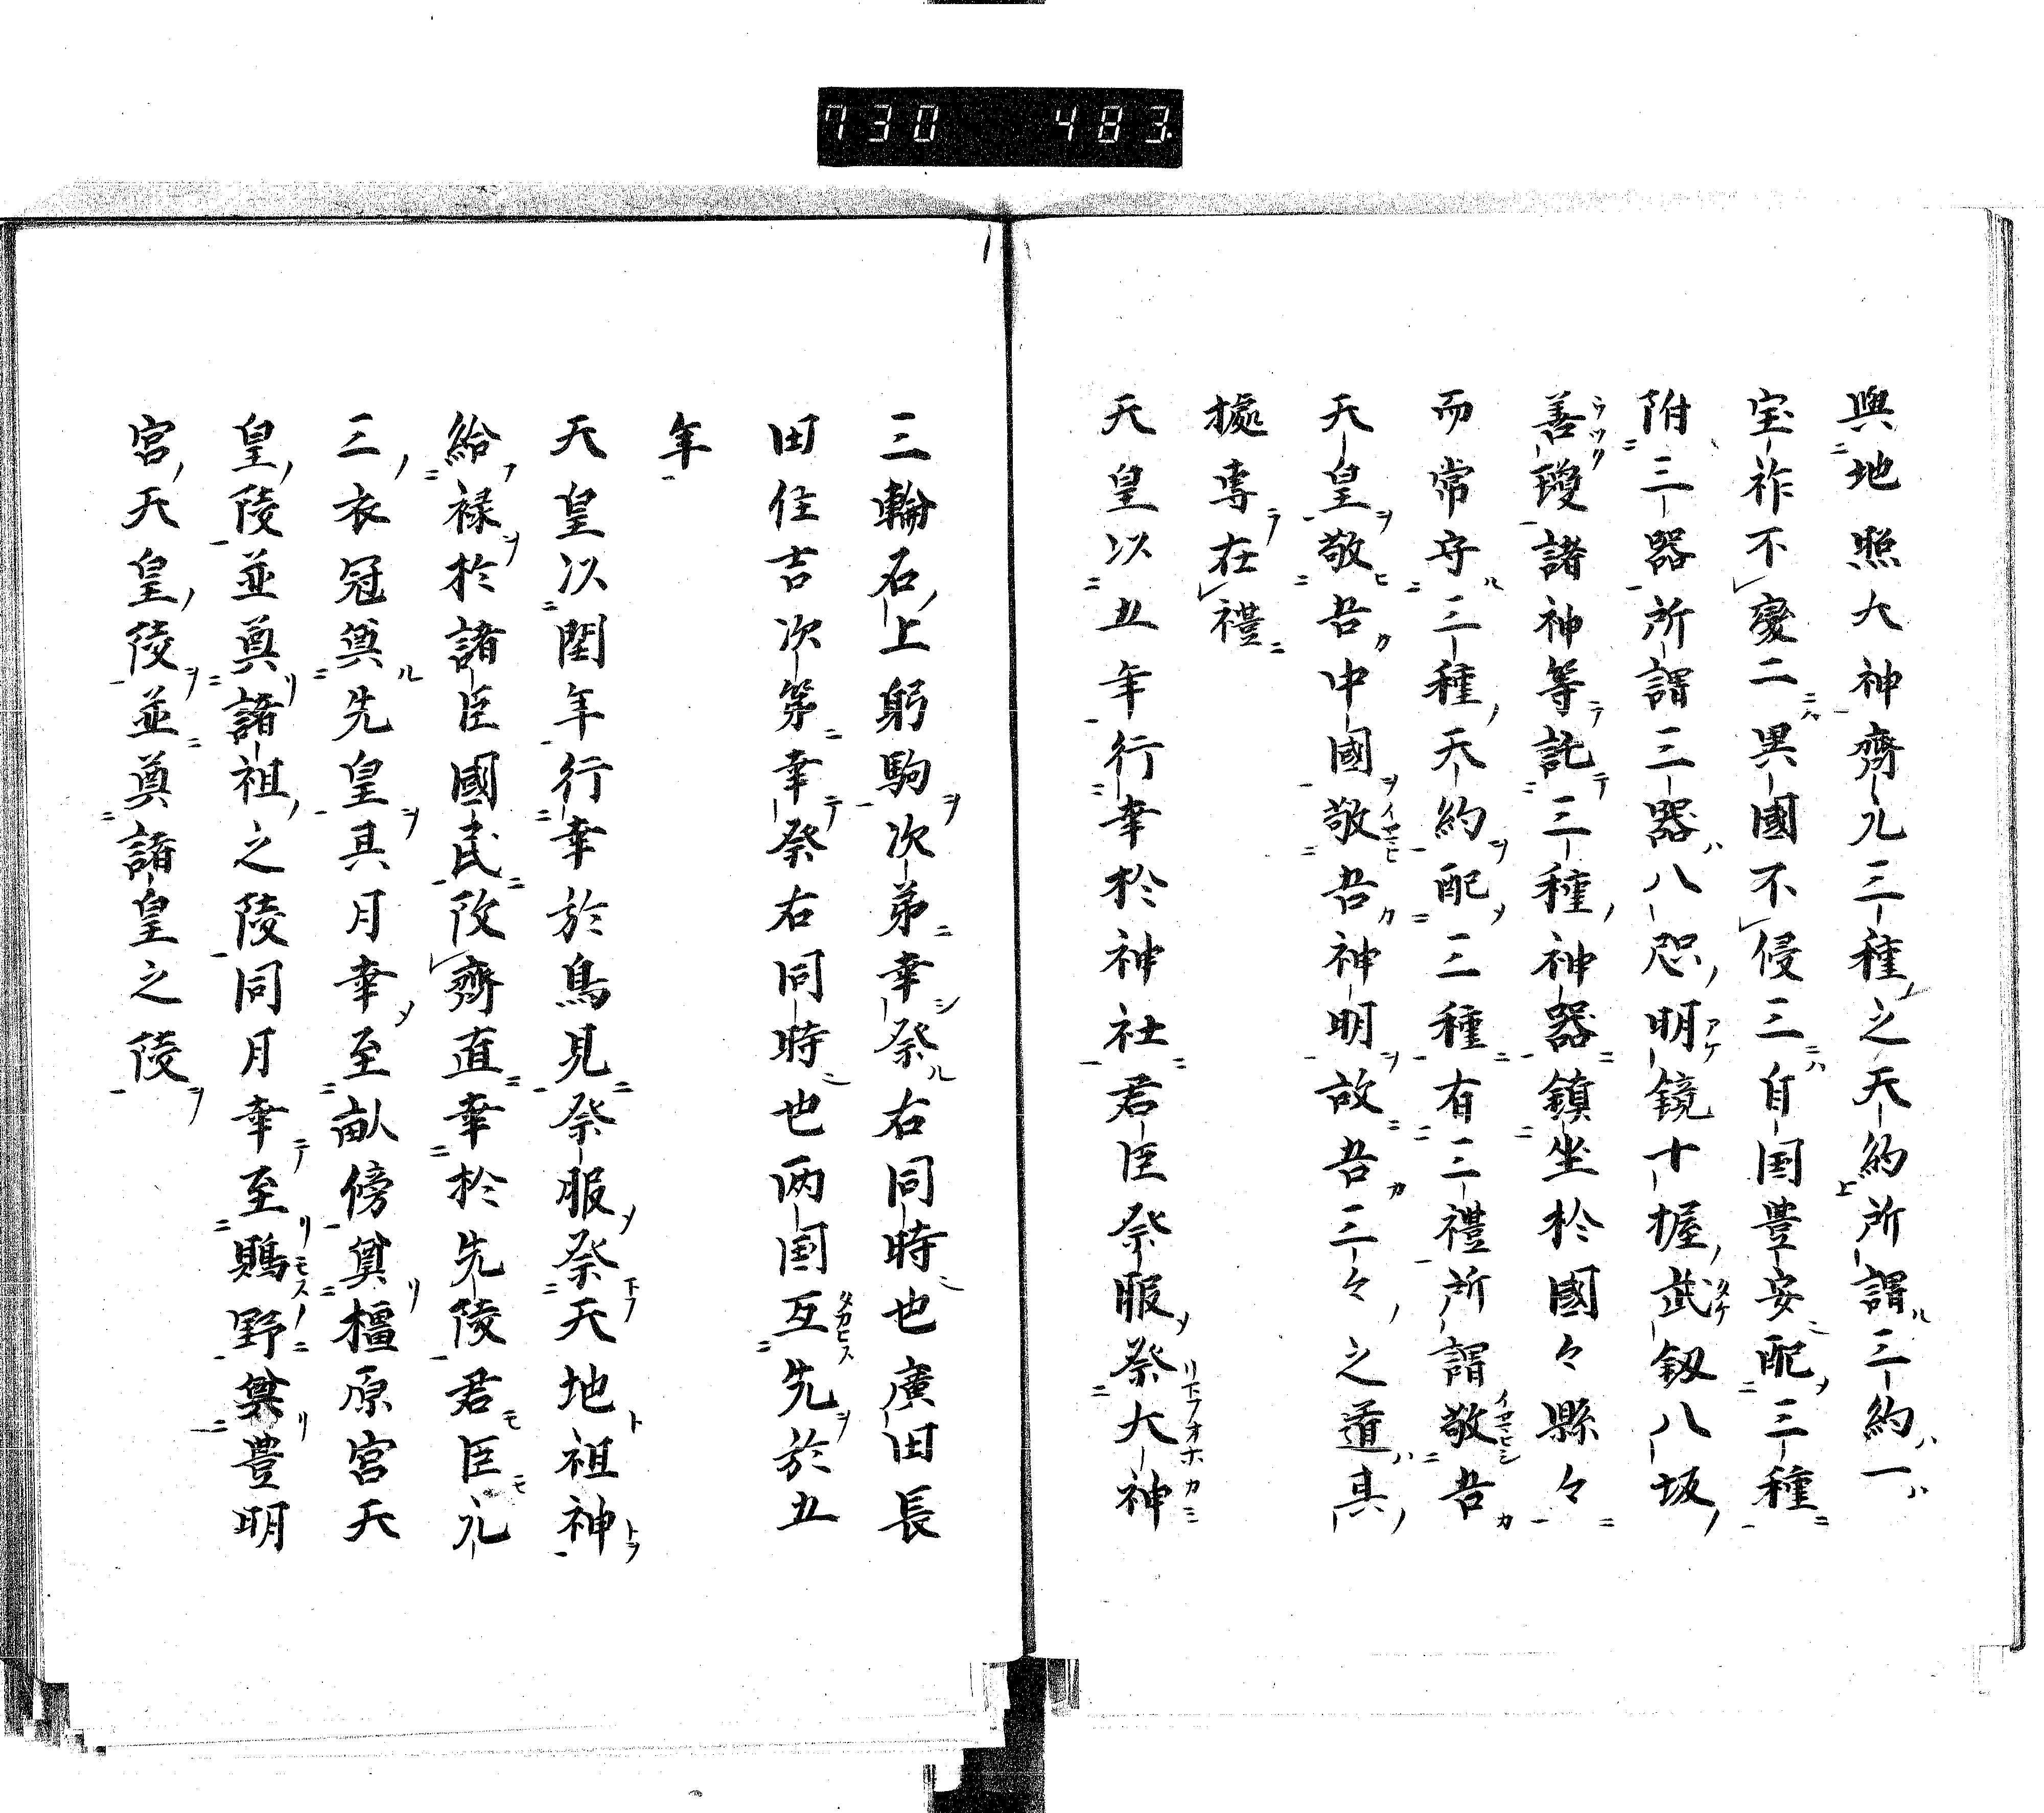 730 483
與地照大神齊元三種之天約所謂三約一
宝祚不變二異國不侵三自国豊安配三種
附三器所謂三器八咫明鏡十握武釼八坂
善瓊諸神等託三種神器鎮坐於國々縣々
而常守三種天約配三種有三禮所謂敬吾
天皇敬吾中國敬吾神明故吾三々之道其
據専在禮
天皇以五年行幸於神社君臣祭服祭大神
三輪石上躬駒次弟幸祭右同時也廣田長
田住吉次第幸祭右同時也両国互先於五
年
天皇以閏年行幸於鳥見祭服祭天地祖神
給禄於諸臣國民改齊直幸於先陵君臣元
三衣冠奠先皇其月幸至畝傍奠橿原宮天
皇陵並奠諸祖之陵同月幸至鵙野奠豊明
宮天皇陵並奠諸皇之陵